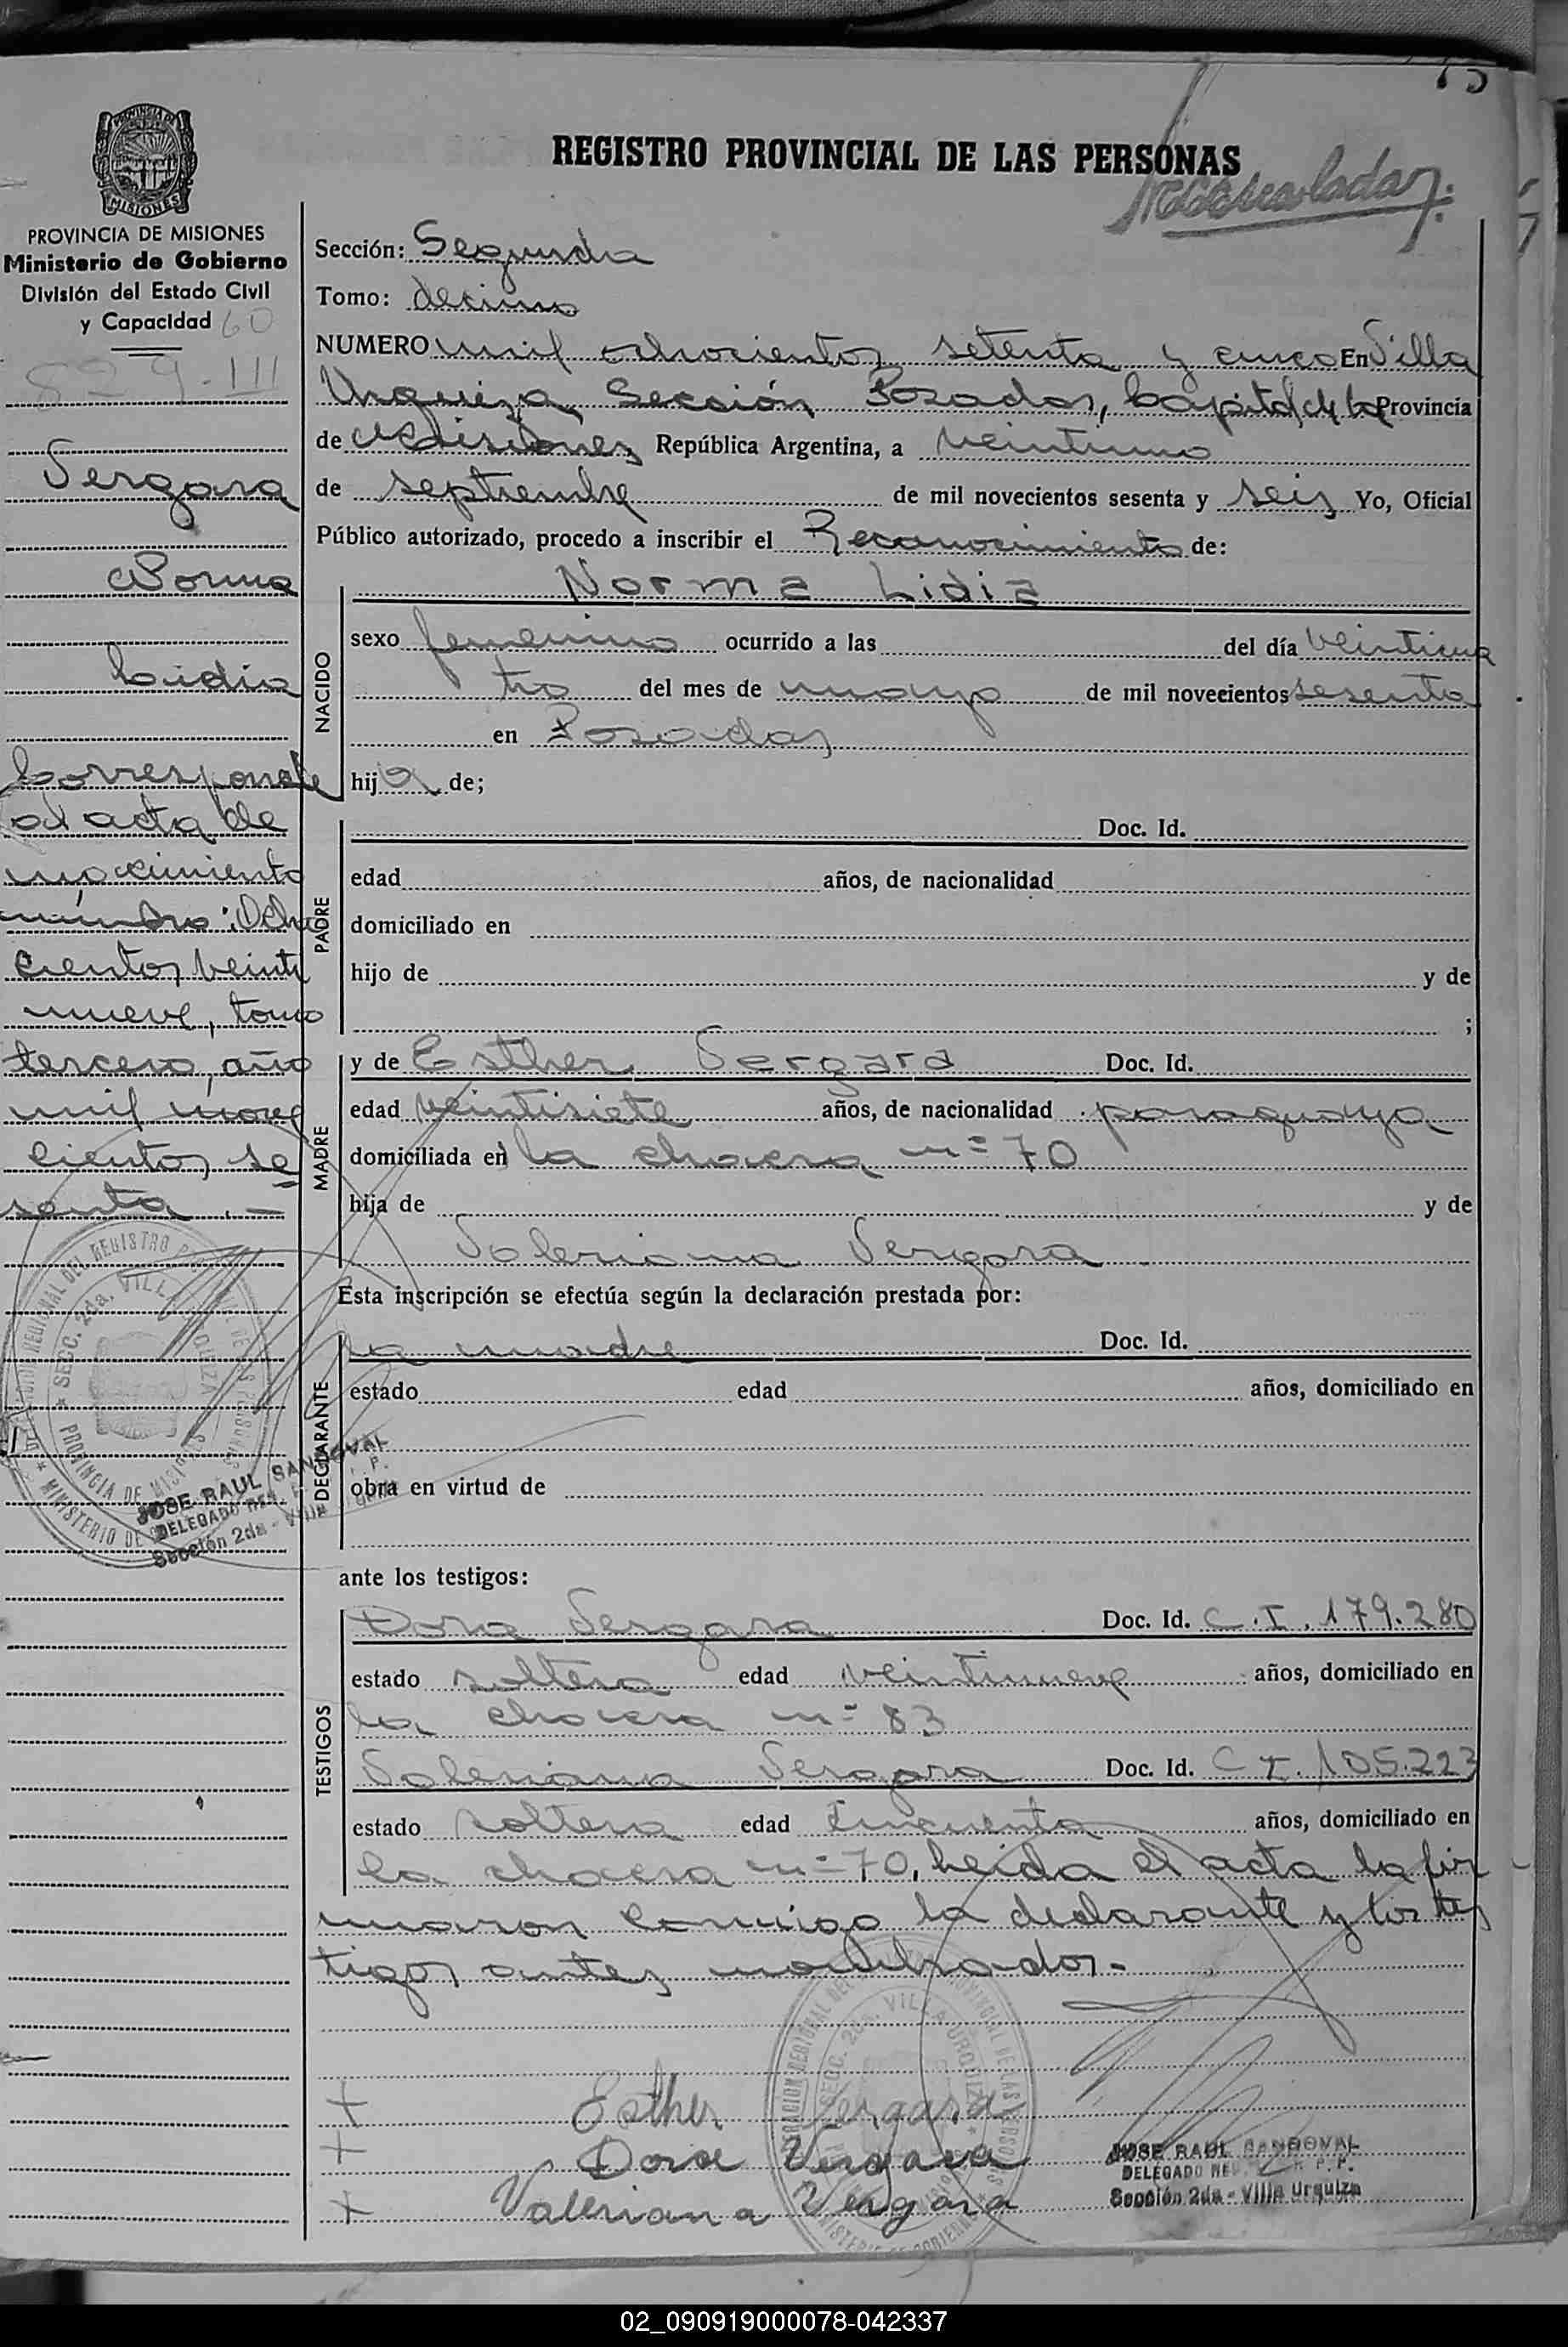 75
REGISTRO PROVINCIAL DE LAS PERSONAS
PROVINCIA DE MISIONES
Ministerio de Gobierno
División del Estado Civil
y Capacidad 60
829-III
Vergara
Norma
Lidia
Corresponde
al acta de
nacimiento
número: Ocho
cientos veinti
nueve, tomo
tercero, año
mil nove
cientos se
senta.-
JOSE RAUL SANDOVAL
DELEGADO REG.
Sección 2da - Villa
Sección: Segunda
Tomo: decimo
NUMERO mil ochocientos setenta y cinco En Villa
Urquiza, Sección Posadas, Capital de la Provincia
de Misiones República Argentina, a veintiuno
de septiembre de mil novecientos sesenta y seis Yo, Oficial
Público autorizado, procedo a inscribir el Reconocimiento de:
Norma Lidia
NACIDO
sexo femenino ocurrido a las del día veinticua
tro del mes de mayo de mil novecientos sesenta
en Posadas
hija de;
PADRE
Doc. Id.
edad años, de nacionalidad
domiciliado en
hijo de y de
;
MADRE
y de Esther Vergara Doc. Id.
edad veintisiete años, de nacionalidad paraguaya
domiciliada en la chacra n= 70
hija de y de
Valeriana Vergara
Esta inscripción se efectúa según la declaración prestada por:
DECLARANTE
la madre Doc. Id.
estado edad años, domiciliado en
obra en virtud de
ante los testigos:
TESTIGOS
Dora Vergara Doc. Id. C.I. 179.280
estado soltera edad veintinueve años, domiciliado en
la chacra n= 83
Valeriana Vergara Doc. Id. C I. 105.223
estado soltera edad cincuenta años, domiciliado en
la chacra n=70. Leida el acta la fir
maron conmigo la declarante y los tes
tigos antes nombrados.-
+ Esther Vergara
+ Dora Vergara
+ Valeriana Vergara
JOSE RAUL SANDOVAL
DELEGADO REG. R. P. P.
Sección 2da - Villa Urquiza
02_090919000078-042337